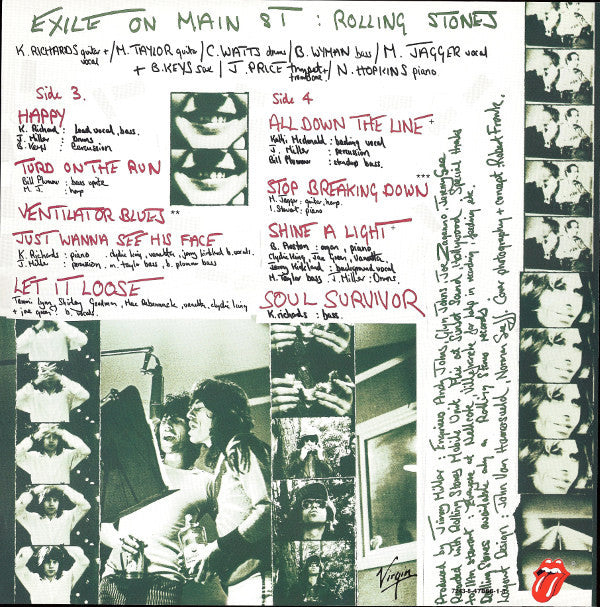 EXILE ON MAIN ST : ROLLING STONES
K. RICHARDS guitar + vocal / M. TAYLOR guitar / C. WATTS drums / B. WYMAN bass / M. JAGGER vocal
+ B. KEYS sax / J. PRICE trumpet + trombone / N. HOPKINS piano
Side 3.
HAPPY
K. Richard : Lead vocal, bass.
J. Miller : Drums
B. Keys : Percussion
TURD ON THE RUN
Bill Plummer : bass
M. J. : harp
VENTILATOR BLUES **
JUST WANNA SEE HIS FACE
K. Richards : piano. clydie king, venetta, jerry kirkland b. vocals.
J. Miller : percussion, m. taylor bass, b. plummer bass
LET IT LOOSE
Tammi Lynn, Shirley Goodman, Mac Rebennack, venetta, clydie king
+ joe green : b. vocals.
Side 4
ALL DOWN THE LINE +
Kathi McDonald : backing vocal
J. Miller : percussion
Bill Plummer : standup bass.
STOP BREAKING DOWN ***
M. Jagger : guitar, harp.
I. Stewart : piano
SHINE A LIGHT +
B. Preston : organ, piano
Clydie King, Joe Green, Vanetta,
Jerry Kirkland : background vocal
M. Taylor bass J. Miller : Drums.
SOUL SURVIVOR
K. richards : bass.
Produced by Jimmy Miller : Engineers Andy Johns, Glyn Johns, Joe Zagarino, Jeremy Gee.
Recorded with Rolling Stones Mobile Unit. Mixed at Sunset Sound, Hollywood. Special thanks
to Ian Stewart : for help in
Rolling Stones available only on Rolling Stones records
Layout Design : John Van Hamersveld / Norman Seeff. Cover photography + concept Robert Frank.
Virgin